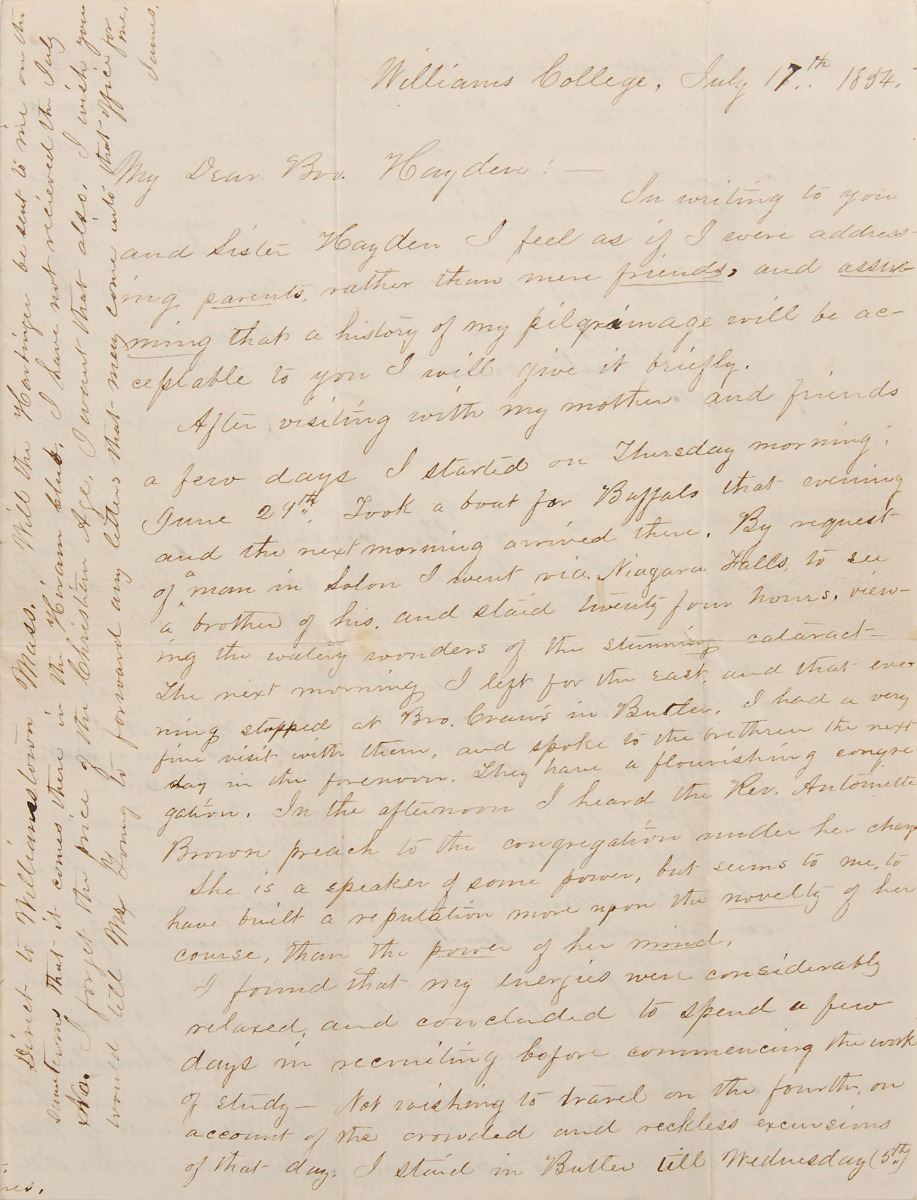 Williams College, July 17th 1854.
My Dear Bro. Hayden! —
In writing to you
and Sister Hayden I feel as if I were address-
ing parents, rather than mere friends, and assu-
ming that a history of my pilgrimage will be ac-
ceptable to you I will give it briefly.
After visiting with my mother and friends
a few days I started on Thursday morning,
June 29th. Took a boat for Buffalo that evening
and the next morning arrived there. By request
of a man in Solon I went via Niagara Falls, to see
a brother of his, and staid twenty four hours, view-
ing the watery wonders of the stunning cataract—
The next morning I left for the East, and that eve-
ning stopped at Bro. Craw's in Butler. I had a very
fine visit with them, and spoke to the brethren the next
day in the forenoon. They have a flourishing congre
gation. In the afternoon I heard the Rev. Antoinette
Brown preach to the congregation under her charg
She is a speaker of some power, but seems to me, to
have built a reputation more upon the novelty of her
course, than the power of her mind.
I found that my energies were considerably
relaxed, and concluded to spend a few
days in recruiting before commencing the work
of study— Not wishing to travel on the fourth, on
account of the crowded and reckless excursions
of that day, I staid in Butler till Wednesday (5th)
Direct to Williamstown Mass. Will the Harbinger be sent to me on the
same terms that it comes there in the Hiram club. I have not recieved the July
No. I forget the price of the Christian Age. I want that also. I wish you
would tell Mr Young to forward any letters that may come into that office for
me,
James.